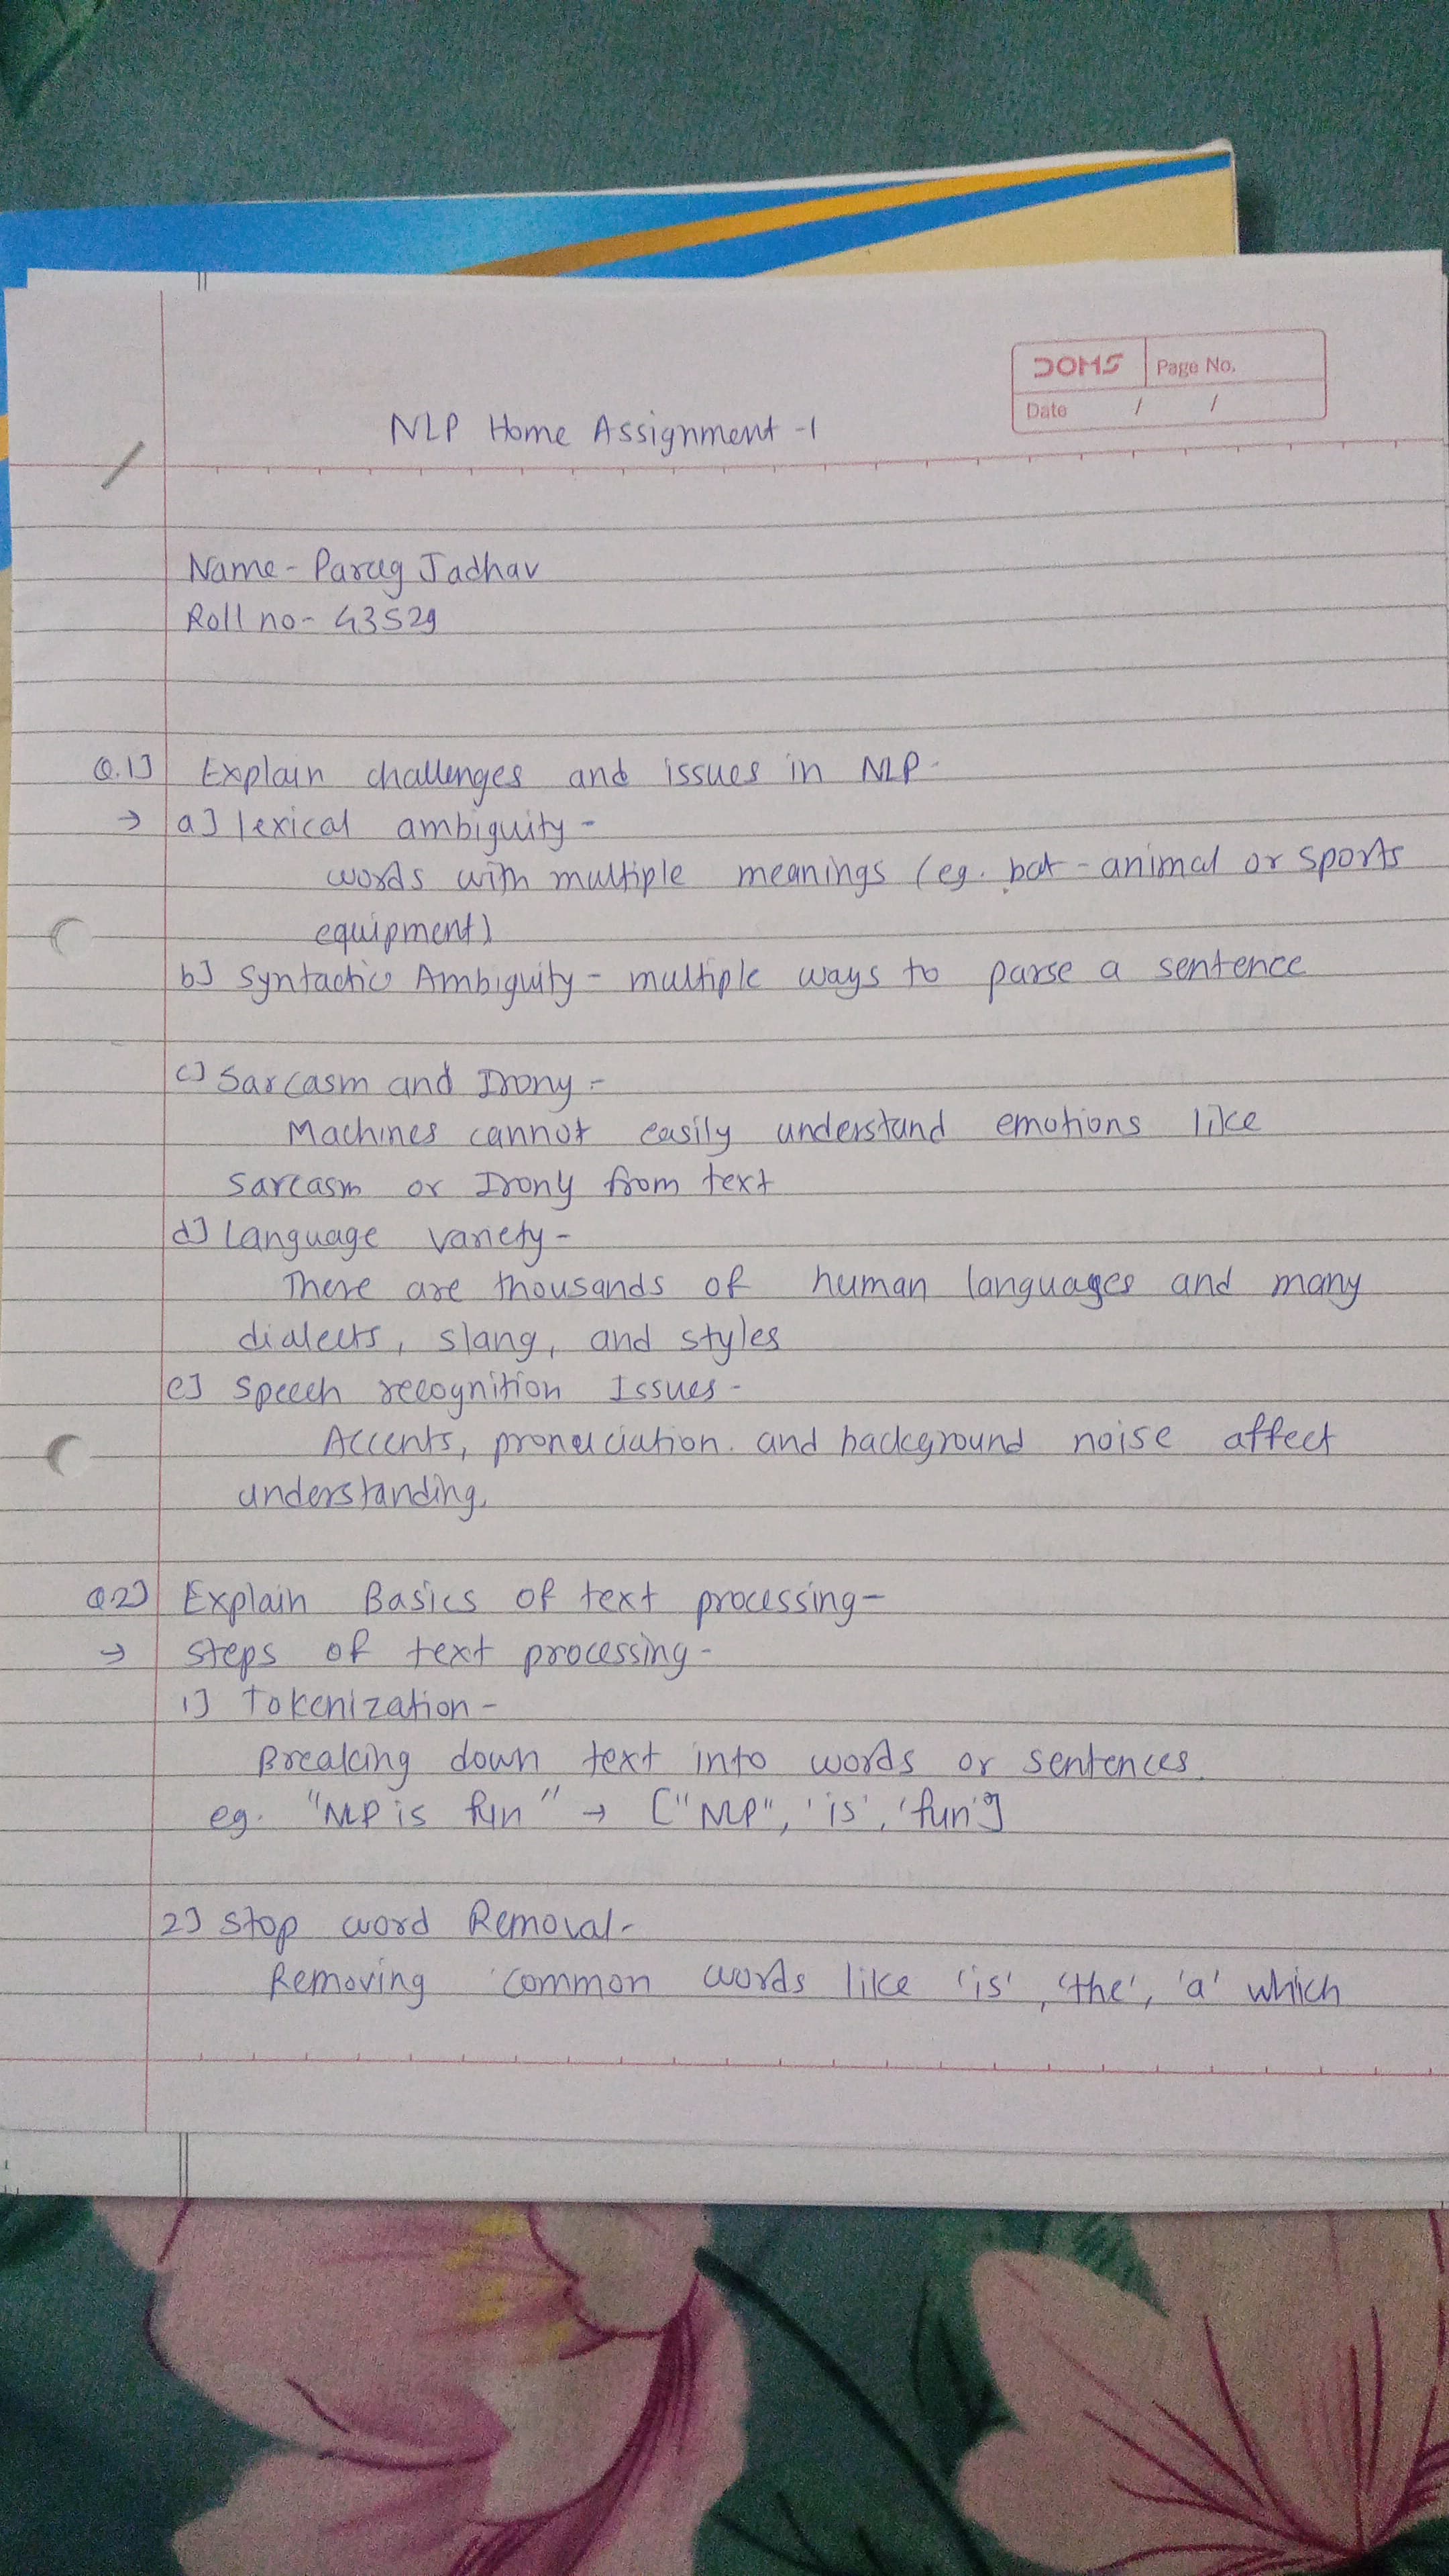 DOMS
Page No.
Date / /
NLP Home Assignment -1
Name - Parag Jadhav
Roll no - 43529
Q.1] Explain challenges and issues in NLP -
→ a] lexical ambiguity -
words with multiple meanings (eg. bat - animal or sports
equipment)
b] Syntactic Ambiguity - multiple ways to parse a sentence
c] Sarcasm and Irony -
Machines cannot easily understand emotions like
Sarcasm or Irony from text
d] Language variety -
There are thousands of human languages and many
dialects, slang, and styles
e] Speech recognition Issues -
Accents, pronuciation. and background noise affect
understanding.
Q.2] Explain Basics of text processing -
→ steps of text processing -
1] Tokenization -
Breaking down text into words or sentences.
eg. "NLP is fun" → ["NLP", 'is', 'fun']
2] Stop word Removal -
Removing common words like 'is', 'the', 'a' which